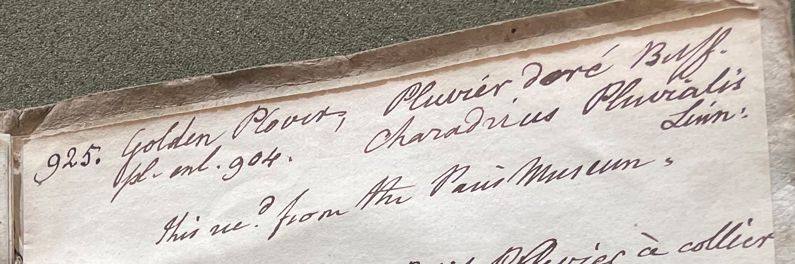 925. Golden Plover, Pluviér doré Buff.
pl. enl. 904. Charadrius Pluvialis
Linn:
this rec.d from the Paris Museum.
Pluvier à collier